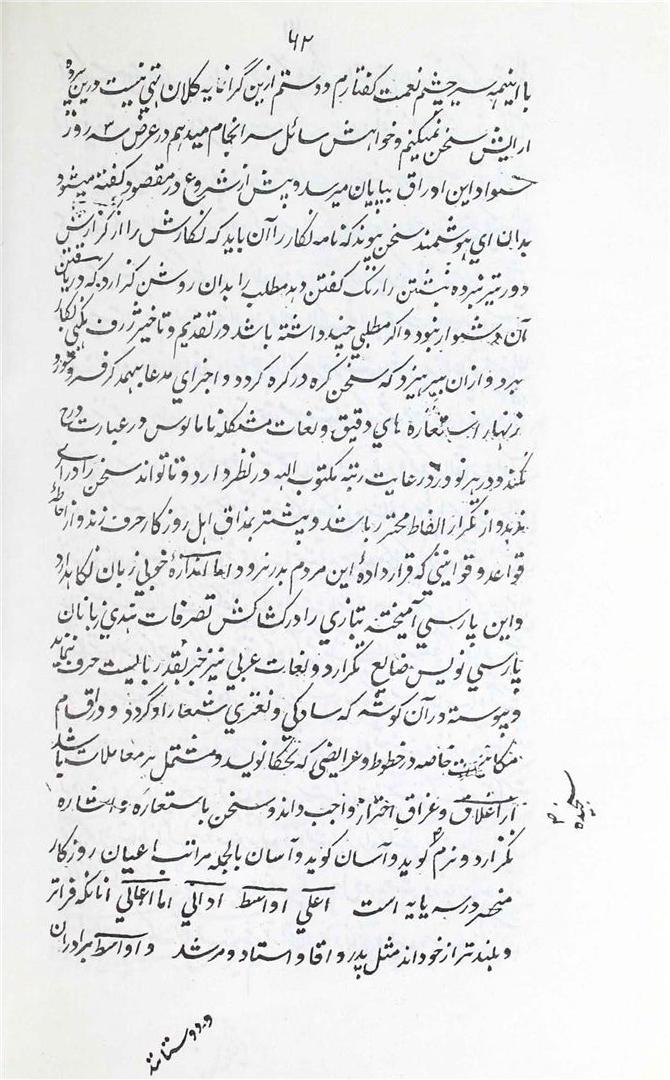 ۶۲
با اینهمه سیر چشم نعمت گفتارم و دستم ازین گرانمایه کلان تهی نیست درین پرده
آرایش سخن نمیکنم و خواهش سائل سرانجام میدهم در عرض سه ۳ روز
سواد این اوراق بپایان میرسد و پیش از شروع در مقصود گفته میشود
بدان ای هوشمند سخن پیوند که نامه نگار را آن باید که نگارش را از گزارش
دورتر نبرده نبشتن را رنگ گفتن دهد مطلب را بدان روش گزارد که دریافتن
آن دشوار نبود و اگر مطلبی چند داشته باشد در تقدیم و تاخیر ژرف نگهی بکار
برد و ازان بپرهیزد که سخن گره در گره گردد و اجزای مدعا بهمدگر فرو خورد
زنهار استعاره های دقیق و لغات مشکله نامانوس در عبارت درج
نکند و در هر نورد رعایت رتبه مکتوب الیه در نظر دارد و تا تواند سخن را درازی
ندهد و از تکرار الفاظ محترز باشد و بیشتر بمذاق اهل روزگار حرف زند و از احاطهٔ
قواعد و قوانینی که قرار دادهٔ این مردم بدر نرود اما اندازهٔ خوبی زبان نگاهدارد
و این پارسی آمیخته بتازی را در کشاکش تصرفات هندی زبانان
پارسی نویس ضایع نگزارد و لغات عربی نیز جز بقدر بایست صرف ننماید
و پیوسته در آن کوشد که سادگی و نغزی شعار او گردد و در اقسام
مکاتیب خاصه در خطوط و عرایضی که بحکام نویسد و مشتمل بر معاملات باشد
از اغلاق و اغراق احتراز واجب داند و سخن باستعاره و اشاره
نگزارد و نرم گوید و سنجیده
آسان گوید و آسان بالجمله مراتب اعیان روزگار
منحصر در سه پایه است اعلی اواسط ادانی اما اعالی آنانکه فراتر
و بلندتر از خود اند مثل پدر و آقا و استاد و مرشد و اواسط برادران
و دوستانند